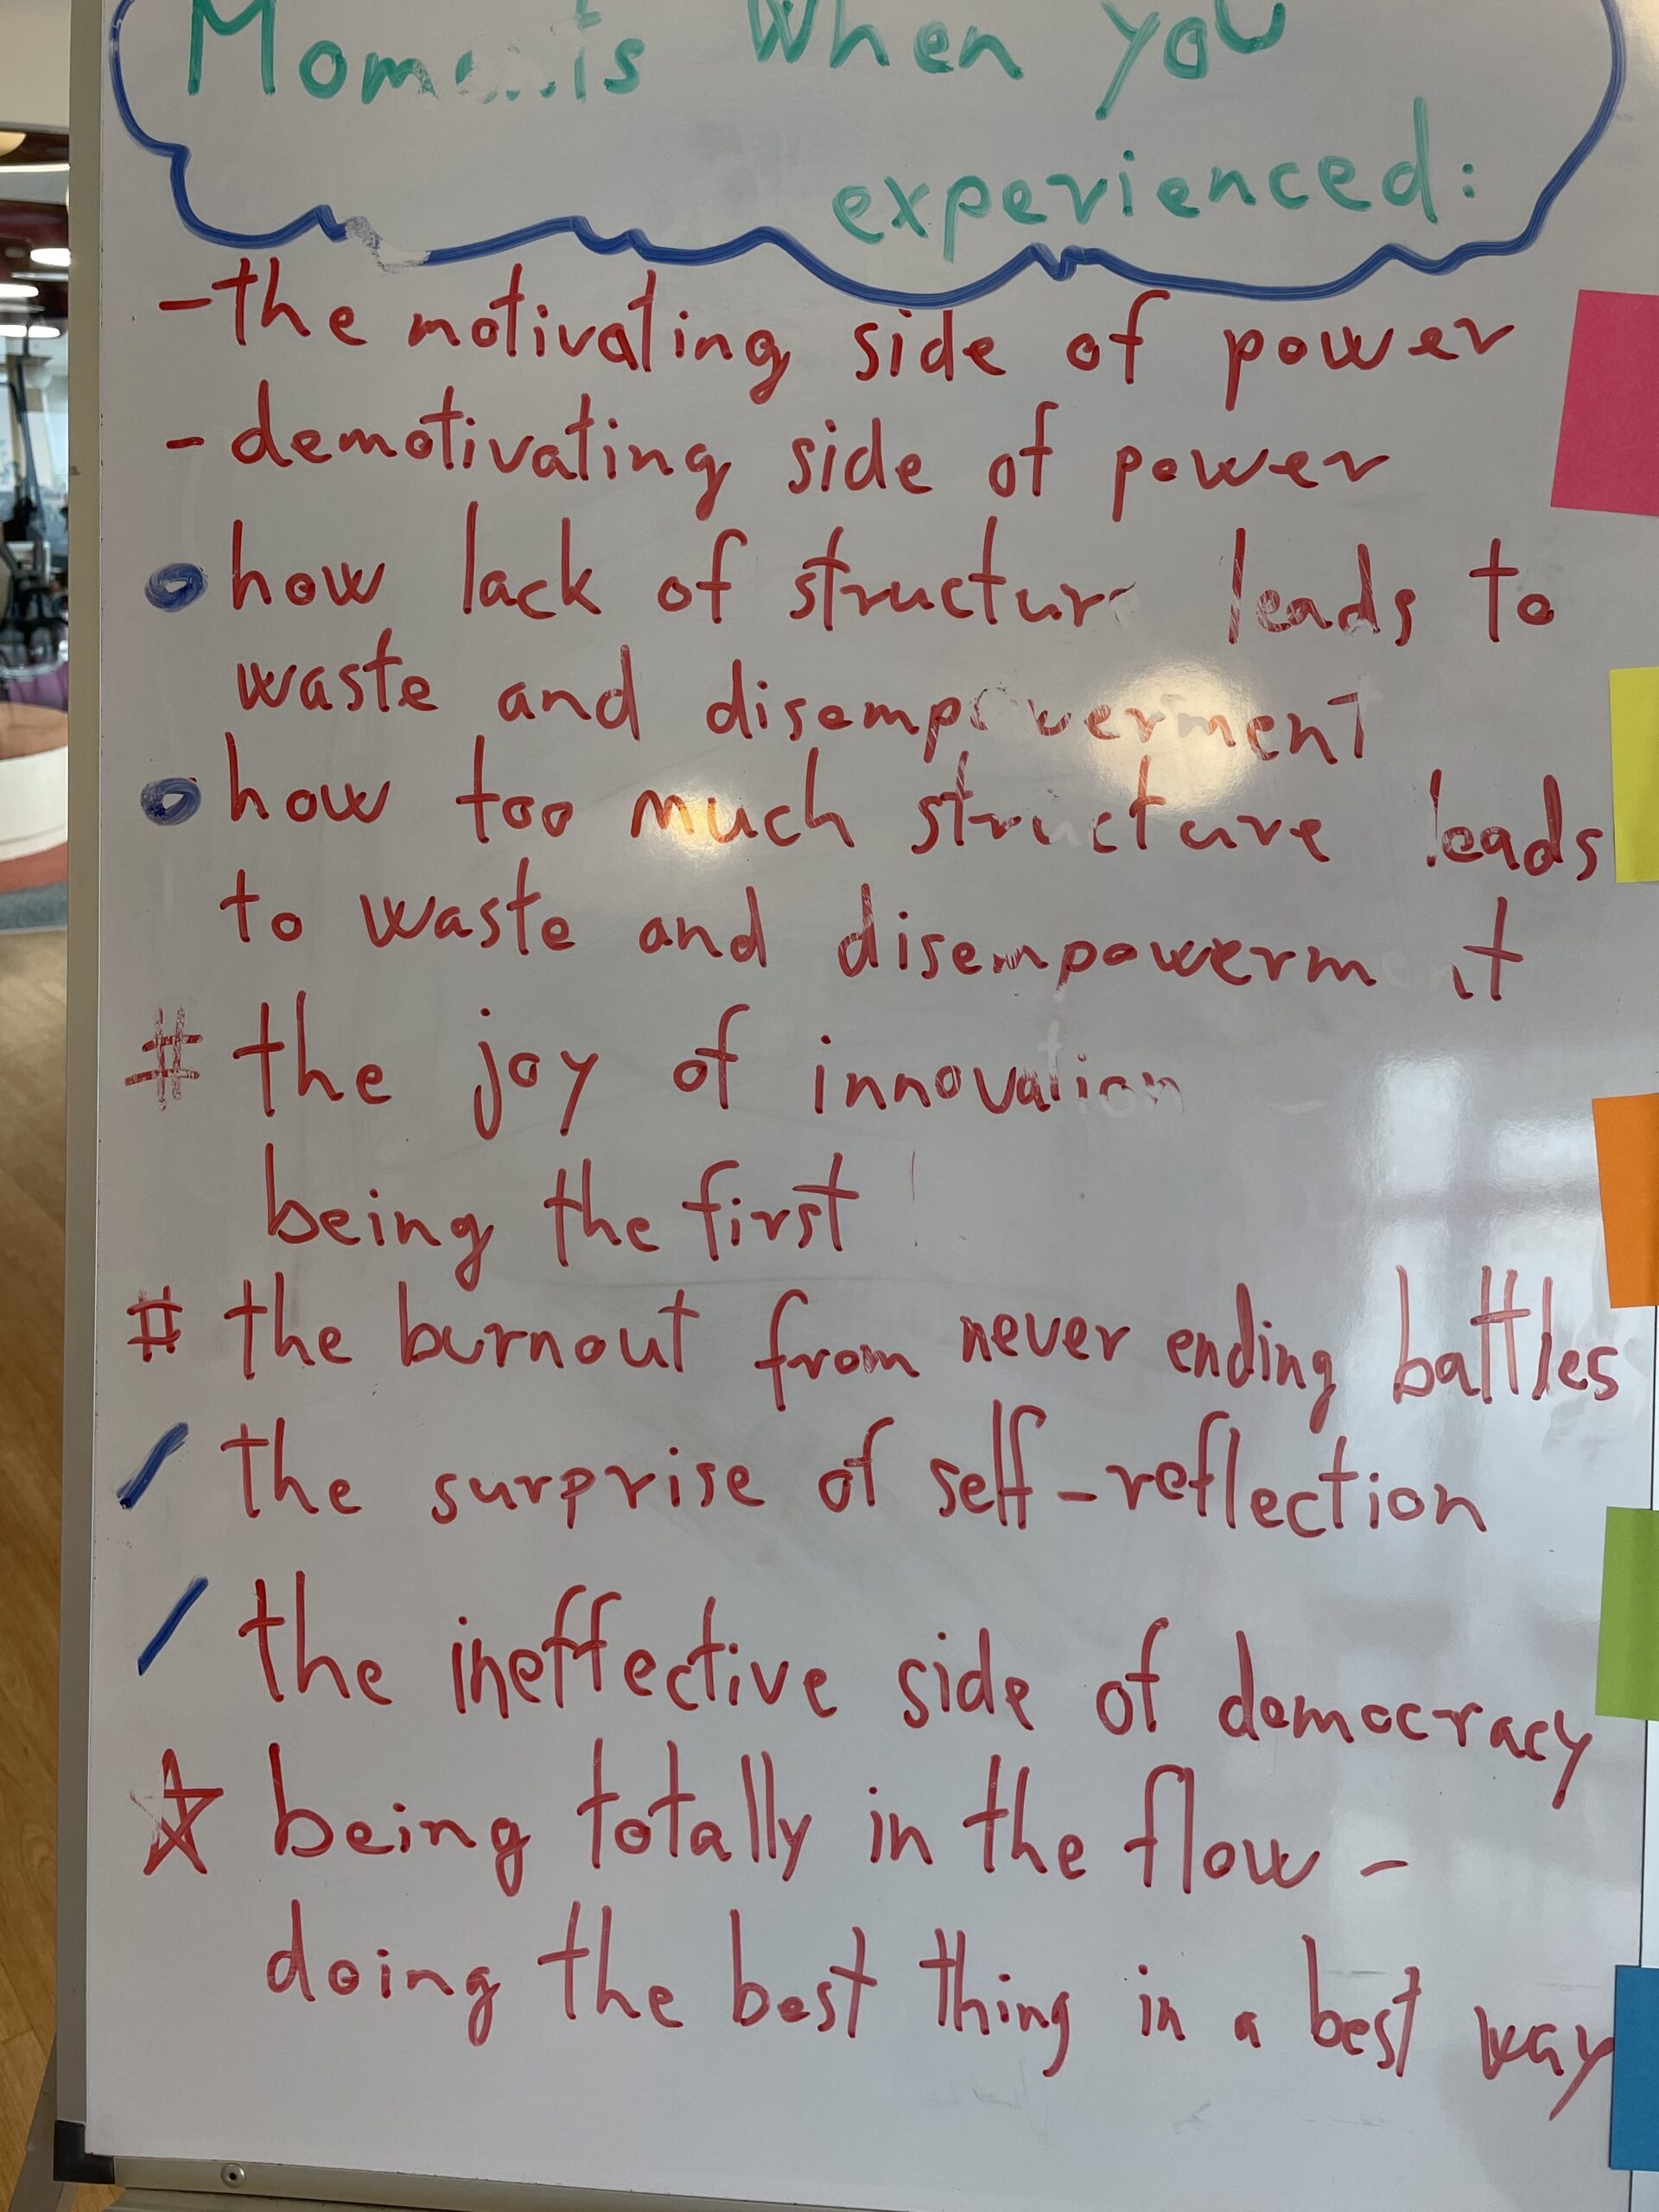 Moments When you
experienced:
- the motivating side of power
- demotivating side of power
how lack of structure leads to
waste and disempowerment
how too much structure leads
to waste and disempowerment
# the joy of innovation
being the first
# the burnout from never ending battles
/ the surprise of self-reflection
/ the ineffective side of democracy
☆ being totally in the flow -
doing the best thing in a best way